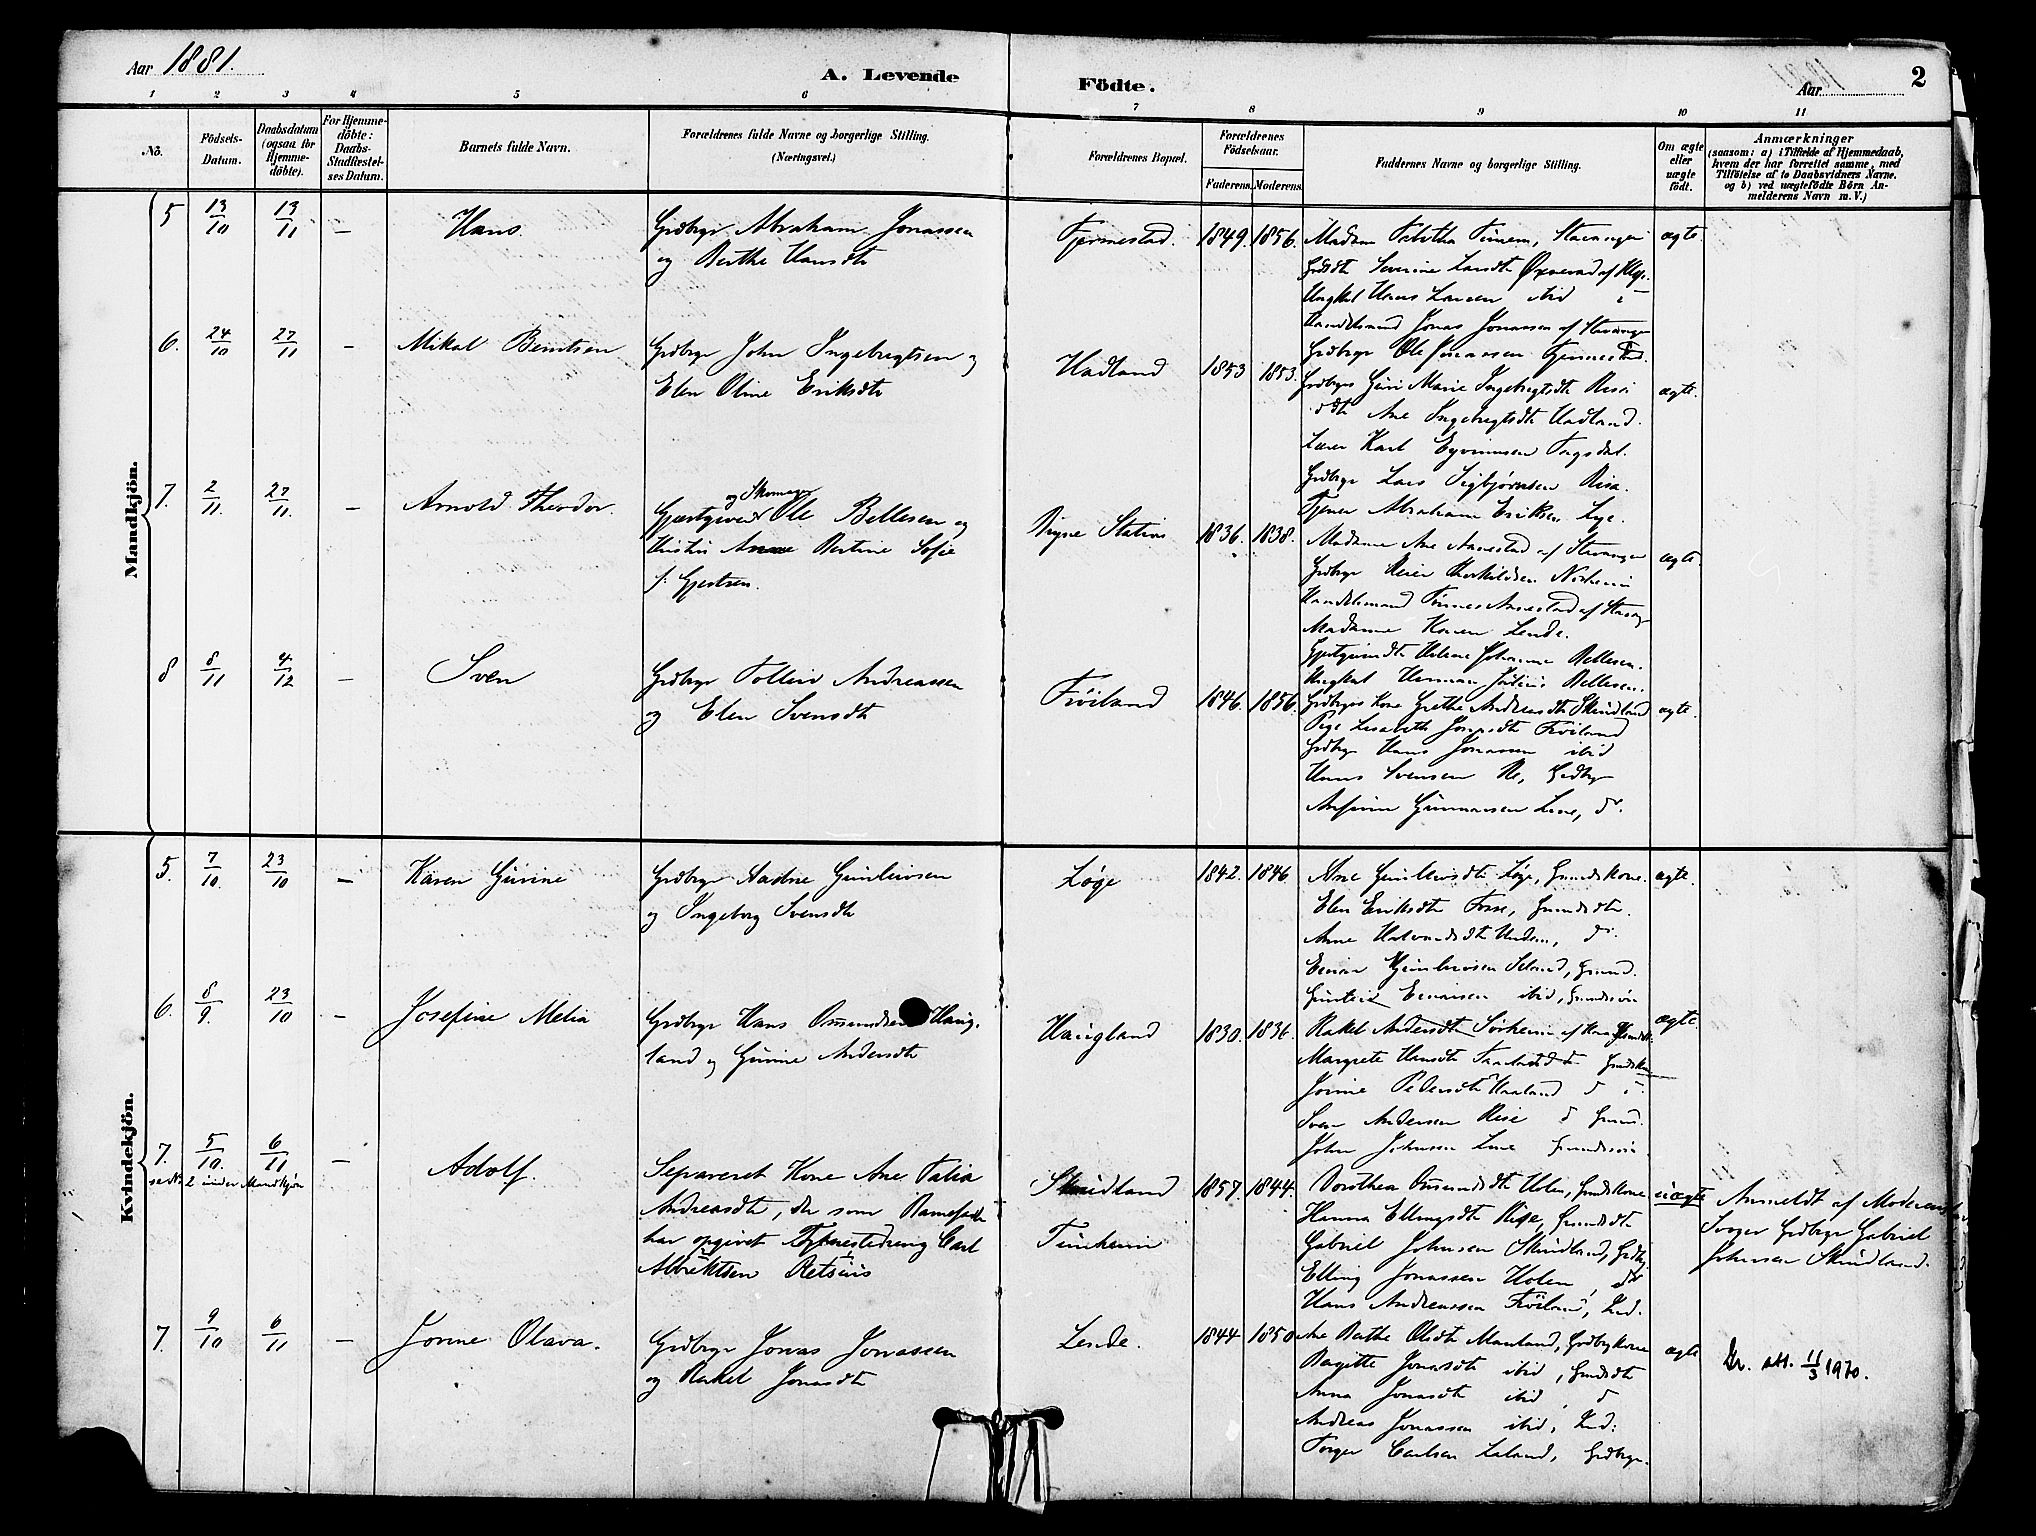 Aar 1881.
A. Levende Födte.
Aar 2
1 2 3 4 5 6 7 8 9 10 11
No.
Födsels-Datum.
Daabsdatum (ogsaa for Hjemme-döbte).
For Hjemme-döbte: Daabs-Stadfæstel-ses Datum.
Barnets fulde Navn.
Forældrenes fulde Navne og borgerlige Stilling.
(Næringsvei.)
Forældrenes Bopæl.
Forældrenes Födselsaar.
Faderens. Moderens.
Faddernes Navne og borgerlige Stilling.
Om ægte eller uægte födt.
Anmærkninger
(saasom: a) i Tilfælde af Hjemmedaab, hvem der har forrettet samme, med Tilföielse af to Daabsvidners Navne. og b) ved uægtefödte Börn An-melderens Navn m. V.)
Mandkjön.
5 13/10 13/11 – Hans
Grdbrgr Abraham Jonassen
og Berthe Hansdtr
Tjemestad. 1849. 1856.
Madam Tabitha Stavanger
Grdsdt Severine Larsdtr Øxnevad af Klep
Ungkal Hans Larsen ibid
Handelsmand Jonas Jonassen af Stavanger
Grdbrgr Ole Jonassen
ægte.
6. 24/10 27/11 – Mikal Berntsen
Grdbrgr John Ingebregtsen og
Elen Oline Eriksdtr
Hadland 1853 1853.
Guri Marie Ingebregtsdtr Risa
Ane Ingebregtsdtr Hadland.
Lærer Karl Eyvinnsen
Grdbrgr Lars Sigbjørnsen Risa.
Tjener Abraham Eriksen Lye.
ægte.
7. 2/11. 27/11. – Arnold Theodor.
og Skomager
Gjæstgiver Ole Bellesen og
Hustru Anne Bertine Sofie
f. Gjertsen.
Bryne Station 1836. 1838.
Madame Ane Aanestad af Stavanger
Grdbrgr Reier Thorkildsen
Handelsmand Tønnes Aanestad af Stavgr
Madame Karen Lende.
Helene Johanne Bellesen.
Ungkal Herman Bellesen.
ægte
8 8/11 4/12 – Sven
Grdbrgr Tolleiv Andreassen
og Elen Svensdtr
Fröiland 1846. 1856.
Grdbrgrs Kone Grethe Andreasdtr Skrudland
Pige Lisabeth Jonasdtr Fröiland
Grdbrgr Hans Jonassen ibid
Hans Svensen Re, Grdbrgr
Gunnarsen Line, do.
ægte.
Kvindekjön.
5. 7/10. 23/10 – Karen Gurine
Grdbrgr Aadne Gunleivsen
og Ingeborg Svensdtr
Løge 1842. 1846
Ane Gunleivsdtr Løge, Grmdskone.
Elen Eriksdtr Fosse, Grmdsdtr.
Anne Halvardsdtr Undem, do.
Einar Gunleivsen Seland, Grmd.
Einarsen ibid, Grmdssön
ægte.
6. 8/9. 23/10 – Josefine Melia
Grdbrgr Hans Omundsen Haug-
land og Gurine Andersdtr
Haugland 1830. 1836.
Rakel Andersdtr Sörheim
Margrete Hansdtr
Jorine Pedersdtr Haaland
Sven Andersen Rise Grmd.
John Johnsen Line Grmdssön
ægte.
7. 5/10. 6/11 – Adolf.
se No. 2 under Mandkjön
Separeret Kone Ane Talia
Andreasdtr, der som Barnefader
har opgivet Tjenestedreng Carl
Albriktsen
Skrudland 1857. 1844.
Tunheim
Dorothea Omundsdtr Holen, Grmdskone
Hanna Ellingsdtr Rise, Grmdsdtr
Gabriel Johnsen Skrudland, Grdbrgr
Elling Jonassen Holen, do
Hans Andreassen Fröiland,
uægte
Anmeldt af Moderens
Svoger Grdbrgr Gabriel
Johnsen Skrudland.
7. 9/10 6/11 – Jorine Olava.
Grdbrgr Jonas Jonassen
og Rakel Jonasdtr
Lende. 1844 1850
Ane Berthe Olsdtr Mauland, Grdbrgkone
Bagitte Jonasdtr ibid, Grmdsdtr
Anna Jonasdtr ibid, do
Andreas Jonassen ibid,
Torger Carlsen Leland, Grdbrgr.
ægte
att. 11/3 1970.